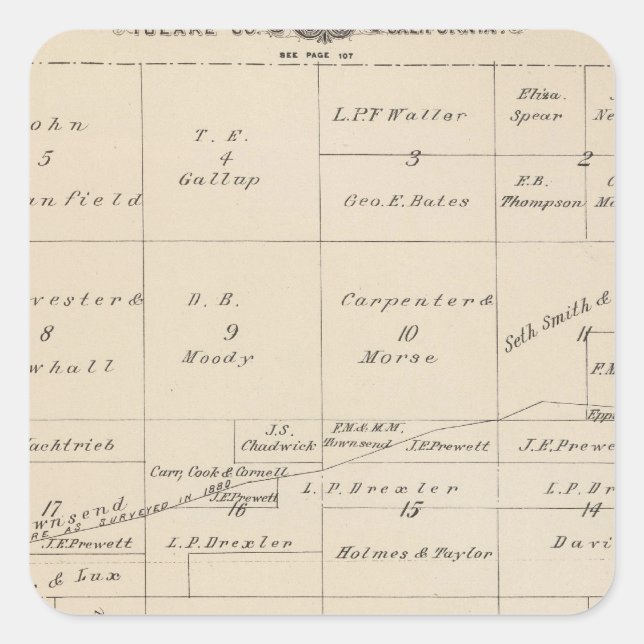 TULARE CO. CALIFORNIA.
SEE PAGE 107
ohn
5
anfield
T. E.
4
Gallup
L.P.F Waller
3
Geo. E. Bates
Eliza.
Spear
E.B.
Thompson
2
vester &
8
whall
D. B.
9
Moody
Carpenter &
10
Morse
Seth Smith &
11
F.M
Epp
achtrieb
J.S.
Chadwick
F.M. & M.M.
Townsend
J.E.Prewett
J.E.Prewe
Carr, Cook & Cornell
J.E.Prewett
17
wnsend
RE AS SURVEYED IN 1880
J.E.Prewett
16
L.P.Drexler
L.P.Drexler
15
Holmes & Taylor
L.P.Dr
14
Davi
. & Lux